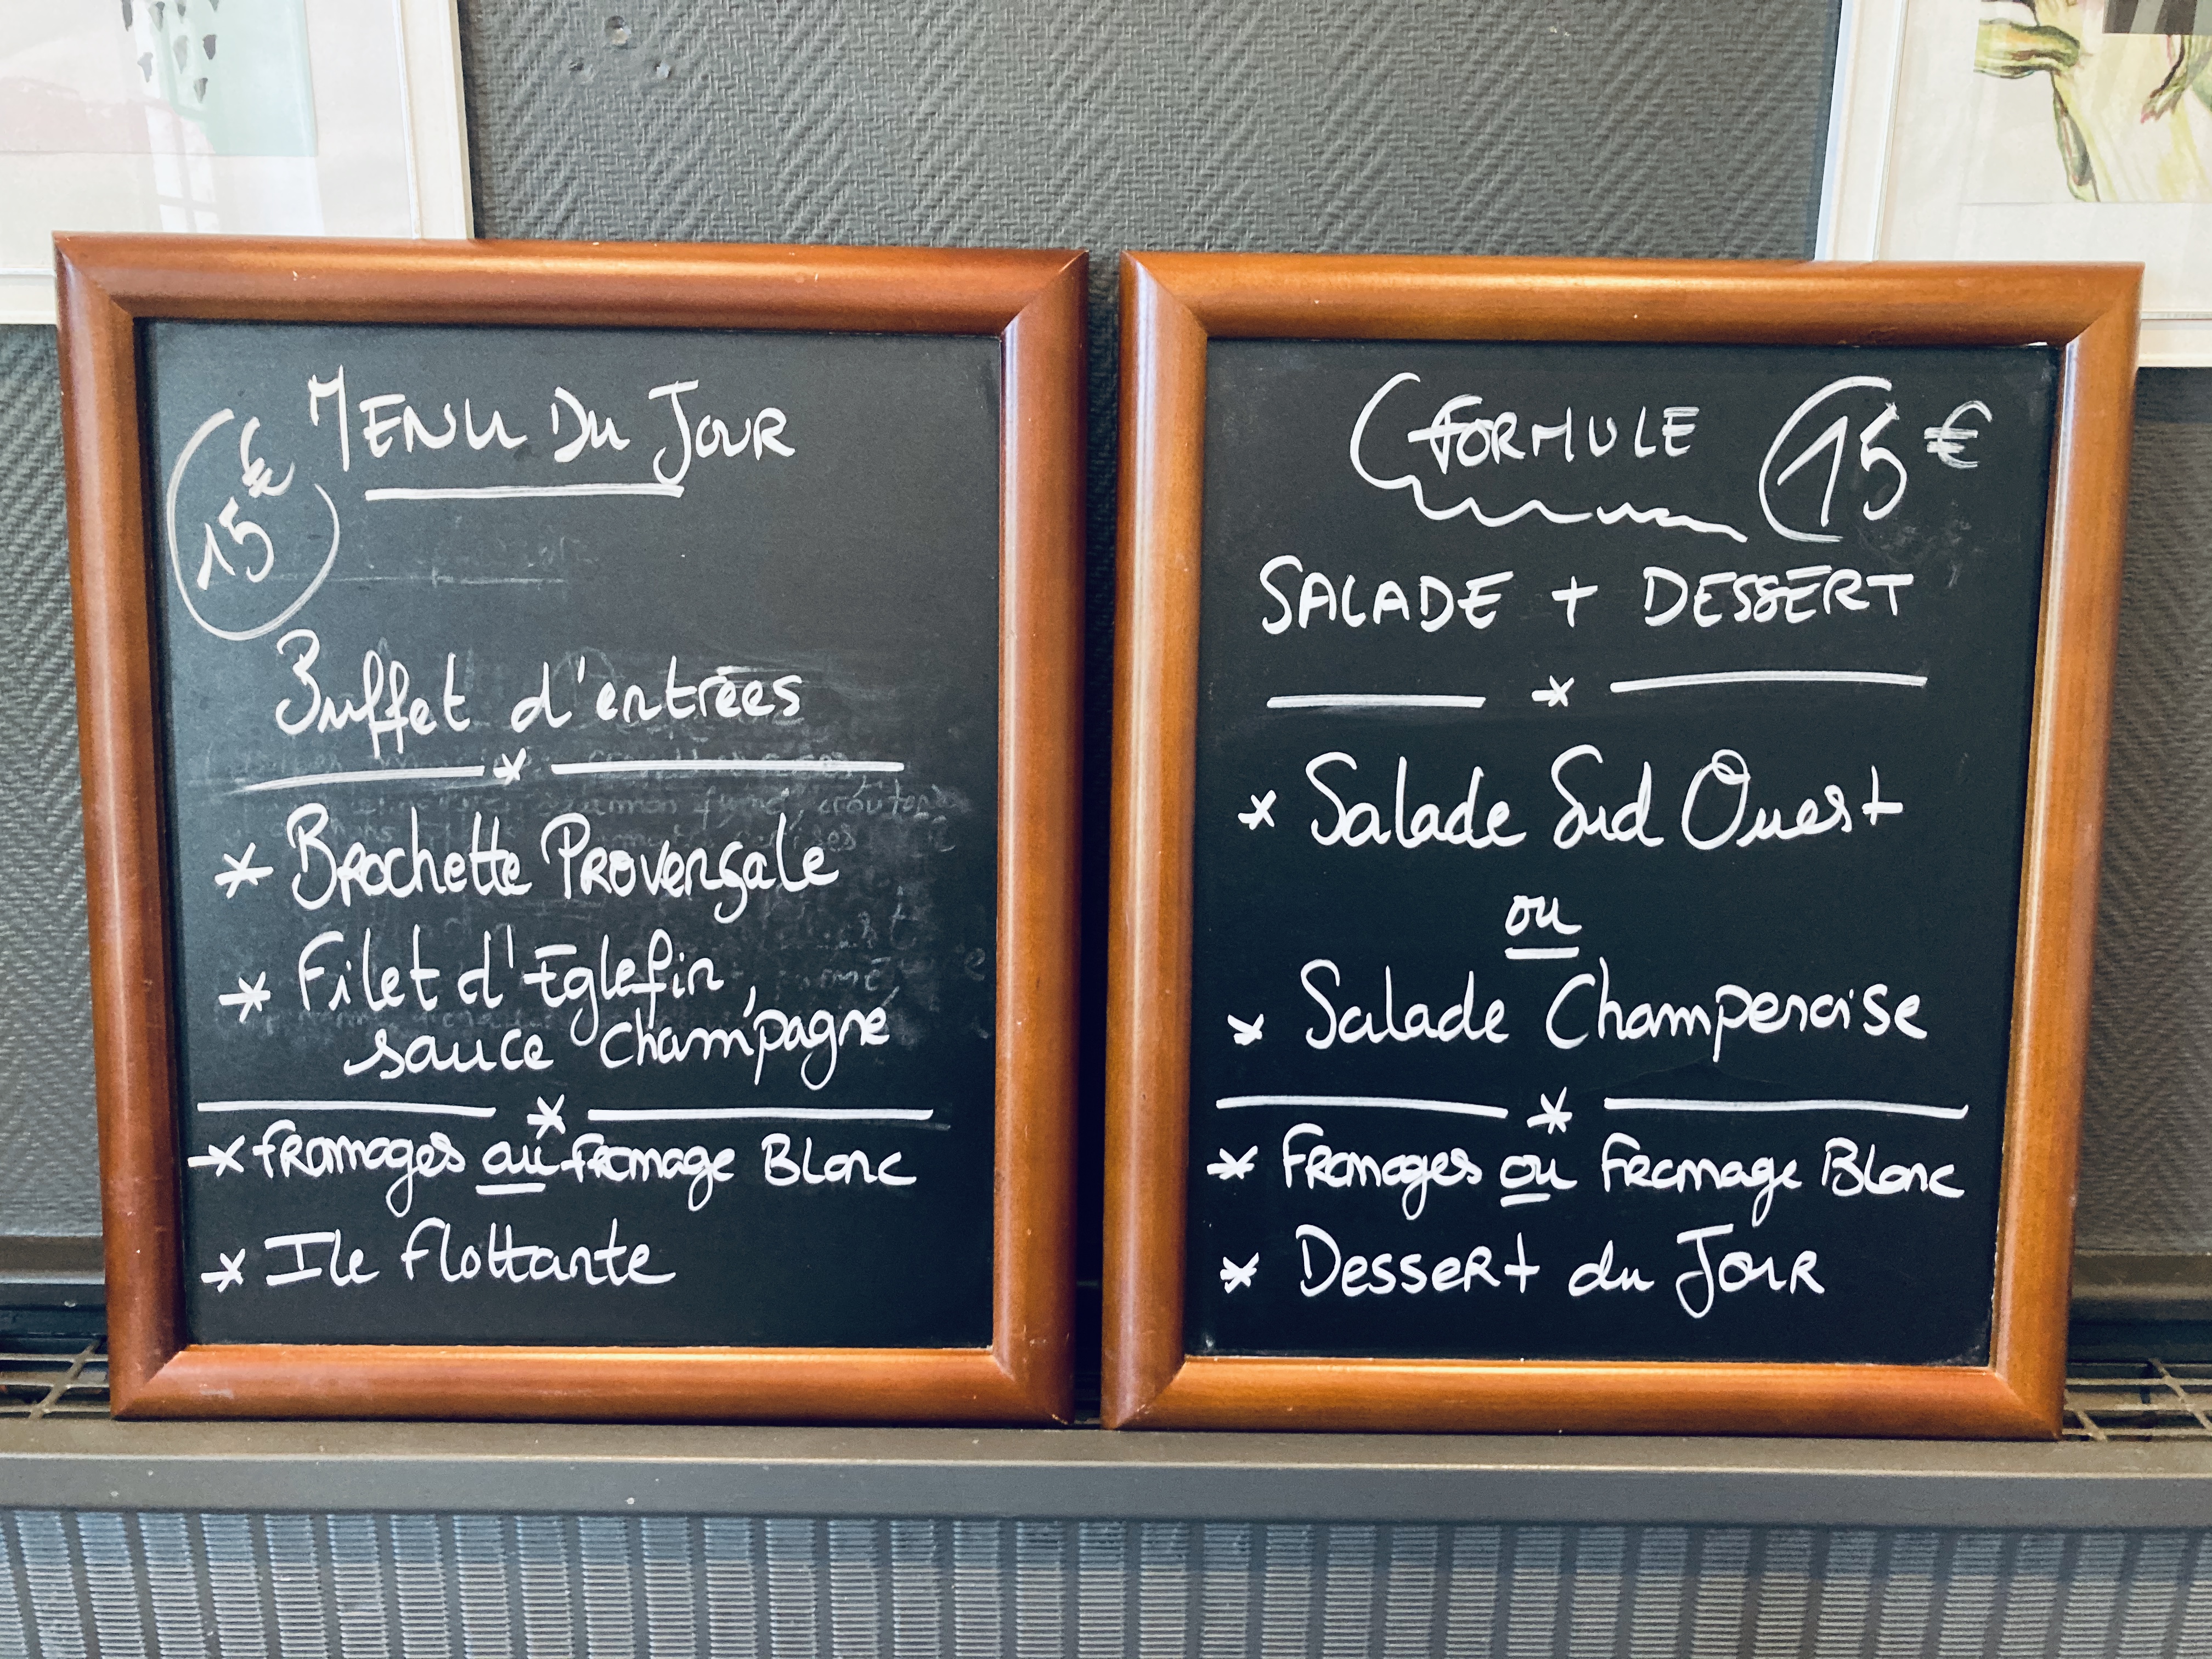 MENU DU JOUR
15€
Buffet d'entrées
* Brochette Provençale
* Filet d'Eglefin,
sauce Champagne
* Fromages ou Fromage Blanc
* Ile Flottante
FORMULE 15€
SALADE + DESSERT
* Salade Sud Ouest
ou
* Salade Champenoise
* Fromages ou Fromage Blanc
* Dessert du Jour